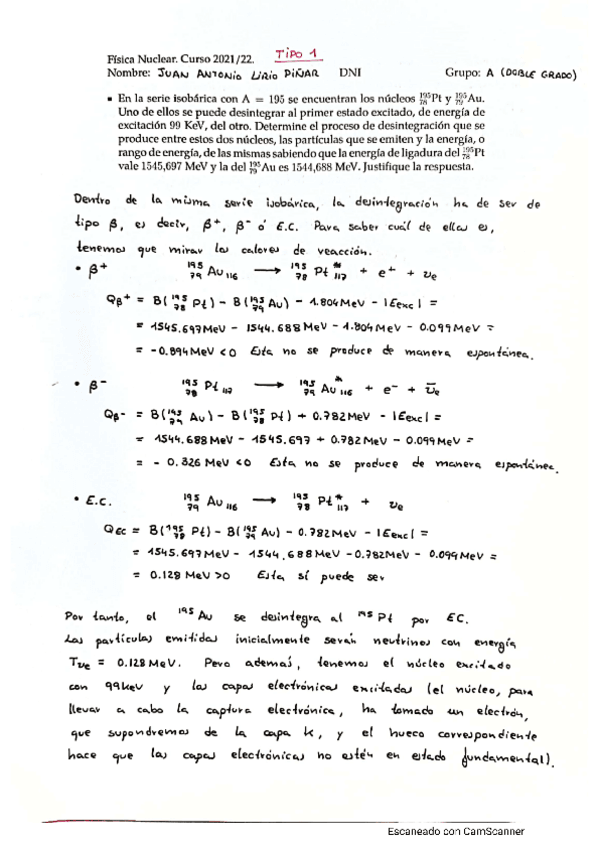 Física Nuclear. Curso 2021/22. TIPO 1
Nombre: JUAN ANTONIO LIRIO PIÑAR DNI Grupo: A (DOBLE GRADO)
▪ En la serie isobárica con A = 195 se encuentran los núcleos ¹⁹⁵₇₈Pt y ¹⁹⁵₇₉Au.
Uno de ellos se puede desintegrar al primer estado excitado, de energía de
excitación 99 KeV, del otro. Determine el proceso de desintegración que se
produce entre estos dos núcleos, las partículas que se emiten y la energía, o
rango de energía, de las mismas sabiendo que la energía de ligadura del ¹⁹⁵₇₈Pt
vale 1545,697 MeV y la del ¹⁹⁵₇₉Au es 1544,688 MeV. Justifique la respuesta.
Dentro de la misma serie isobárica, la desintegración ha de ser de
tipo β, es decir, β⁺, β⁻ ó E.C. Para saber cuál de ellas es,
tenemos que mirar los calores de reacción.
• β⁺ ¹⁹⁵₇₉Au₁₁₆ → ¹⁹⁵₇₈Pt*₁₁₇ + e⁺ + νe
Qβ⁺ = B(¹⁹⁵₇₈Pt) - B(¹⁹⁵₇₉Au) - 1.804MeV - |Eexc| =
= 1545,697MeV - 1544.688 MeV - 1.804 MeV - 0.099 MeV =
= -0.894MeV <0 Esta no se produce de manera espontánea.
• β⁻ ¹⁹⁵₇₈Pt₁₁₇ → ¹⁹⁵₇₉Au*₁₁₆ + e⁻ + ν̄e
Qβ⁻ = B(¹⁹⁵₇₉Au) - B(¹⁹⁵₇₈Pt) + 0.782MeV - |Eexc| =
= 1544.688 MeV - 1545.697 + 0.782 MeV - 0.099 MeV =
= - 0.326 MeV <0 Esta no se produce de manera espontánea.
• E.C. ¹⁹⁵₇₉Au₁₁₆ → ¹⁹⁵₇₈Pt*₁₁₇ + νe
QEC = B(¹⁹⁵₇₈Pt) - B(¹⁹⁵₇₉Au) - 0.782 MeV - |Eexc| =
= 1545.697 MeV - 1544.688 MeV - 0.782MeV - 0.099 MeV =
= 0.128 MeV >0 Esta sí puede ser
Por tanto, el ¹⁹⁵Au se desintegra al ¹⁹⁵Pt por EC.
Las partículas emitidas inicialmente serán neutrinos con energía
Tνe = 0.128 MeV. Pero además, tenemos el núcleo excitado
con 99keV y las capas electrónicas excitadas (el núcleo, para
llevar a cabo la captura electrónica, ha tomado un electrón,
que supondremos de la capa K, y el hueco correspondiente
hace que las capas electrónicas no estén en estado fundamental).
Escaneado con CamScanner